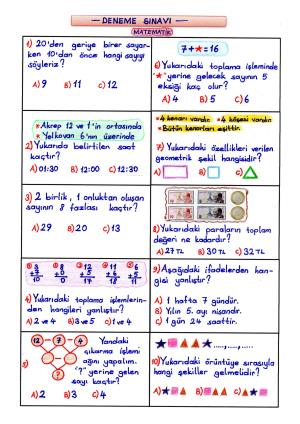 DENEME SINAVI
MATEMATİK
1) 20'den geriye birer sayarken 10'dan önce hangi sayıyı söyleriz?
A) 9 B) 11 C) 12
7 + * = 16
6) Yukarıdaki toplama işleminde "*" yerine gelecek sayının 5 eksiği kaç olur?
A) 4 B) 5 C) 6
* Akrep 12 ve 1'in ortasında
* Yelkovan 6'nın üzerinde
2) Yukarıda belirtilen saat kaçtır?
A) 01:30 B) 12:00 C) 12:30
* 4 kenarı vardır. * 4 köşesi vardır
* Bütün kenarları eşittir.
7) Yukarıdaki özellikleri verilen geometrik şekil hangisidir?
A) B) C)
3) 2 birlik, 1 onluktan oluşan sayının 8 fazlası kaçtır?
A) 29 B) 20 C) 13
8) Yukarıdaki paraların toplam değeri ne kadardır?
A) 27 TL B) 30 TL C) 32 TL
① ② ③ ④ ⑤
4) Yukarıdaki toplama işlemlerinden hangileri yanlıştır?
A) 2 ve 4 B) 3 ve 5 C) 1 ve 4
9) Aşağıdaki ifadelerden hangisi yanlıştır?
A) 1 hafta 7 gündür.
B) Yılın 5. ayı nisandır.
C) 1 gün 24 saattir.
12 - 7 - 4
5) Yandaki çıkarma işlemi ağını yapalım. "?" yerine gelen sayı kaçtır?
A) 2 B) 3 C) 4
10) Yukarıdaki örüntüye sırasıyla hangi şekiller gelmelidir?
A) B) C)